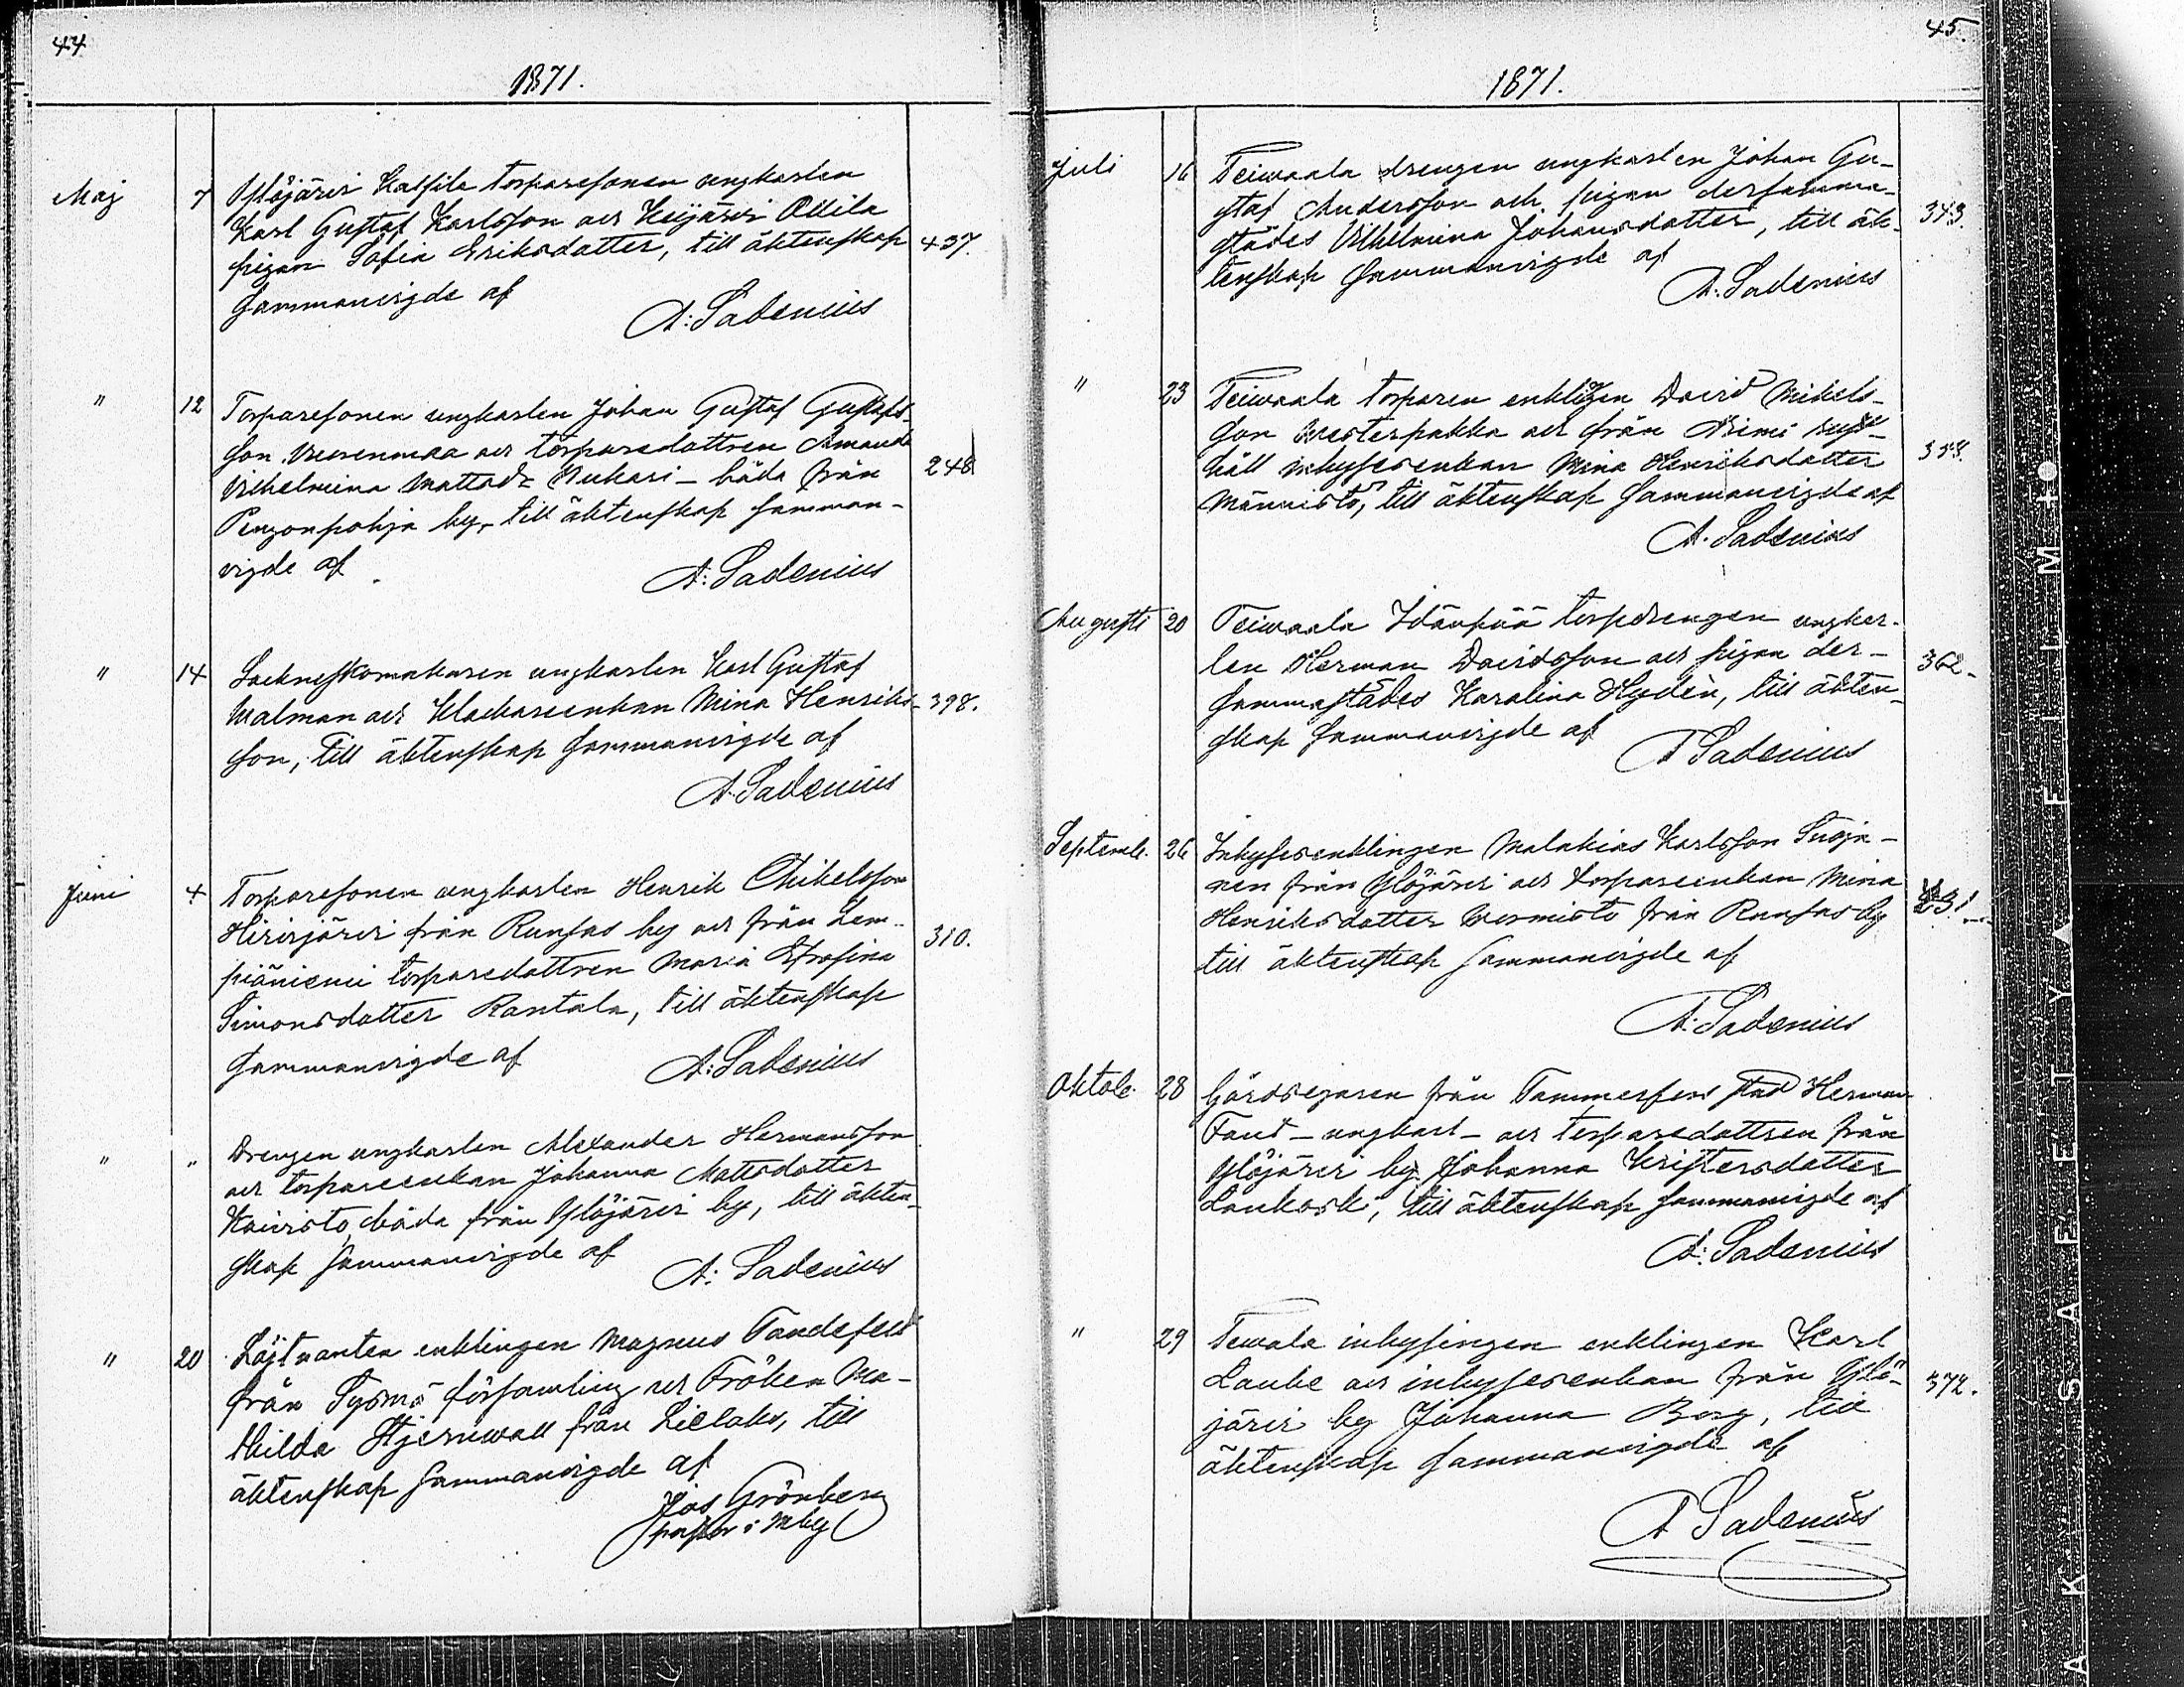 44.
1871.
Maj 7 Ylöjärvi torparesonen ungkarlen
Karl Gustaf Karlsson och Keijärvi Ollila
pigan Sofia Eriksdotter, till äktenskap 437.
sammanvigde af
A: Sadenius
" 12 Torparesonen ungkarlen Johan Gustaf Gustafs-
son och torparedottren Amanda
Vilhelmina Mattsdr Mukari – båda från 248
Pengonpohja by, till äktenskap samman-
vigde af
A: Sadenius
" 14 Socknesskomakaren ungkarlen Karl Gustaf
Malman och Klockareenkan Mina Henriks- 398.
son, till äktenskap sammanvigde af
A. Sadenius
Juni 4 Torparesonen ungkarlen Henrik Mikelsson
Hirvijärvi från Runsas by och från Lem-
piäniemi torparedottren Maria Efrosina 310.
Simonsdotter Rantala, till äktenskap
sammanvigde af
A: Sadenius
" " Drengen ungkarlen Alexander Hermansson
och torpareenkan Johanna Mattsdotter
Koivisto, båda från Ylöjärvi by, till äkten-
skap sammanvigde af
A: Sadenius
" 20 Löjtnanten enklingen Magnus Tandefelt
från Sysmä församling och Fröken Ma-
thilda Stjernvall från Lielaks, till
äktenskap sammanvigde af
Jos Grönberg
pastor i Mby
45.
1871.
Juli 16 Teivaala drengen ungkarlen Johan Gu-
staf Andersson och pigan dersamma- 343.
städes Vilhelmina Johansdotter, till äk-
tenskap sammanvigde af
A. Sadenius
" 23 Teivaala torparen enklingen David Mikels-
son Mesterpakka och från Niemi rust-
håll inhysesenkan Mina Henriksdotter
Männistö, till äktenskap sammanvigde af
A. Sadenius
Augusti 20 Teivaala Idänpää torpdrengen ungkar-
len Herman Davidsson och pigan der- 362.
sammastädes Karolina Hydén, till äkten-
skap sammanvigde af
A Sadenius
Septemb. 26 Inhysesenklingen Malakias Karlsson Suoja-
nen från Ylöjärvi och torpareenkan Mina
Henriksdotter Vuormisto från Runsas by
till äktenskap sammanvigde af
A: Sadenius
Oktob. 28 Gårdsegaren från Tammerfors stad Herman
Fant – ungkarl – och torparedottren från
Ylöjärvi by Johanna Kristersdotter
Laukoski, till äktenskap sammanvigde af
A: Sadenius
" 29 Teivala inhysingen enklingen Karl
Laube och inhysesenkan från Ylö- 372.
järvi by Johanna Borg, till
äktenskap sammanvigde af
A Sadenius